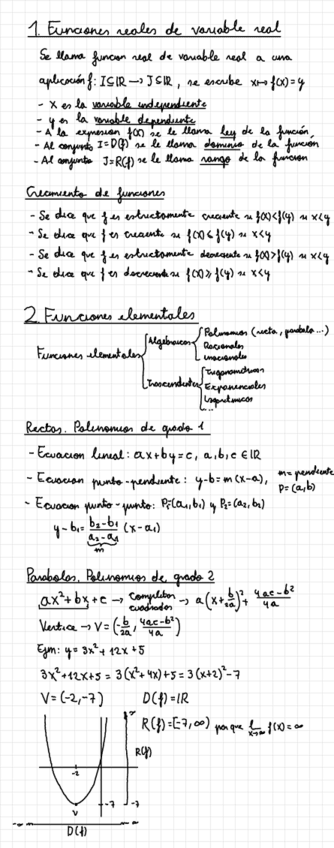 1. Funciones reales de variable real
Se llama funcion real de variable real a una
aplicación f: I⊆ℝ → J⊆ℝ, se escribe x↦f(x)=y
- x es la variable independiente
- y es la variable dependiente
- A la expresion f(x) se le llama ley de la función
- Al conjunto I=D(f) se le llama dominio de la función
- Al conjunto J=R(f) se le llama rango de la funcion
Crecimiento de funciones
- Se dice que f es estrictamente creciente si f(x)<f(y) si x<y
- Se dice que f es creciente si f(x)≤f(y) si x<y
- Se dice que f es estrictamente decreciente si f(x)>f(y) si x<y
- Se dice que f es decreciente si f(x)≥f(y) si x<y
2. Funciones elementales
Funciones elementales
Algebraicas
Polinomios (recta, parabola...)
Racionales
Irracionales
Trascendentes
Trigonométricas
Exponenciales
Logaritmicas
...
Rectas. Polinomios de grado 1
- Ecuacion lineal: ax+by=c, a,b,c ∈ ℝ
- Ecuacion punto-pendiente: y-b=m(x-a), m=pendiente
P=(a,b)
- Ecuacion punto-punto: P₁=(a₁,b₁) y P₂=(a₂,b₂)
y-b₁= (b₂-b₁)/(a₂-a₁) (x-a₁)
m
Parabolas. Polinomios de grado 2
ax²+bx+c → Completar cuadrados → a(x+b/2a)²+ (4ac-b²)/4a
Vertice → V=(-b/2a, (4ac-b²)/4a)
Ejm: y=3x²+12x+5
3x²+12x+5=3(x²+4x)+5=3(x+2)²-7
V=(-2,-7) D(f)=ℝ
R(f)=[-7,∞) porque lim x→∞ f(x)=∞
∞
R(f)
-2
V
-7
-7
-∞ ∞
D(f)